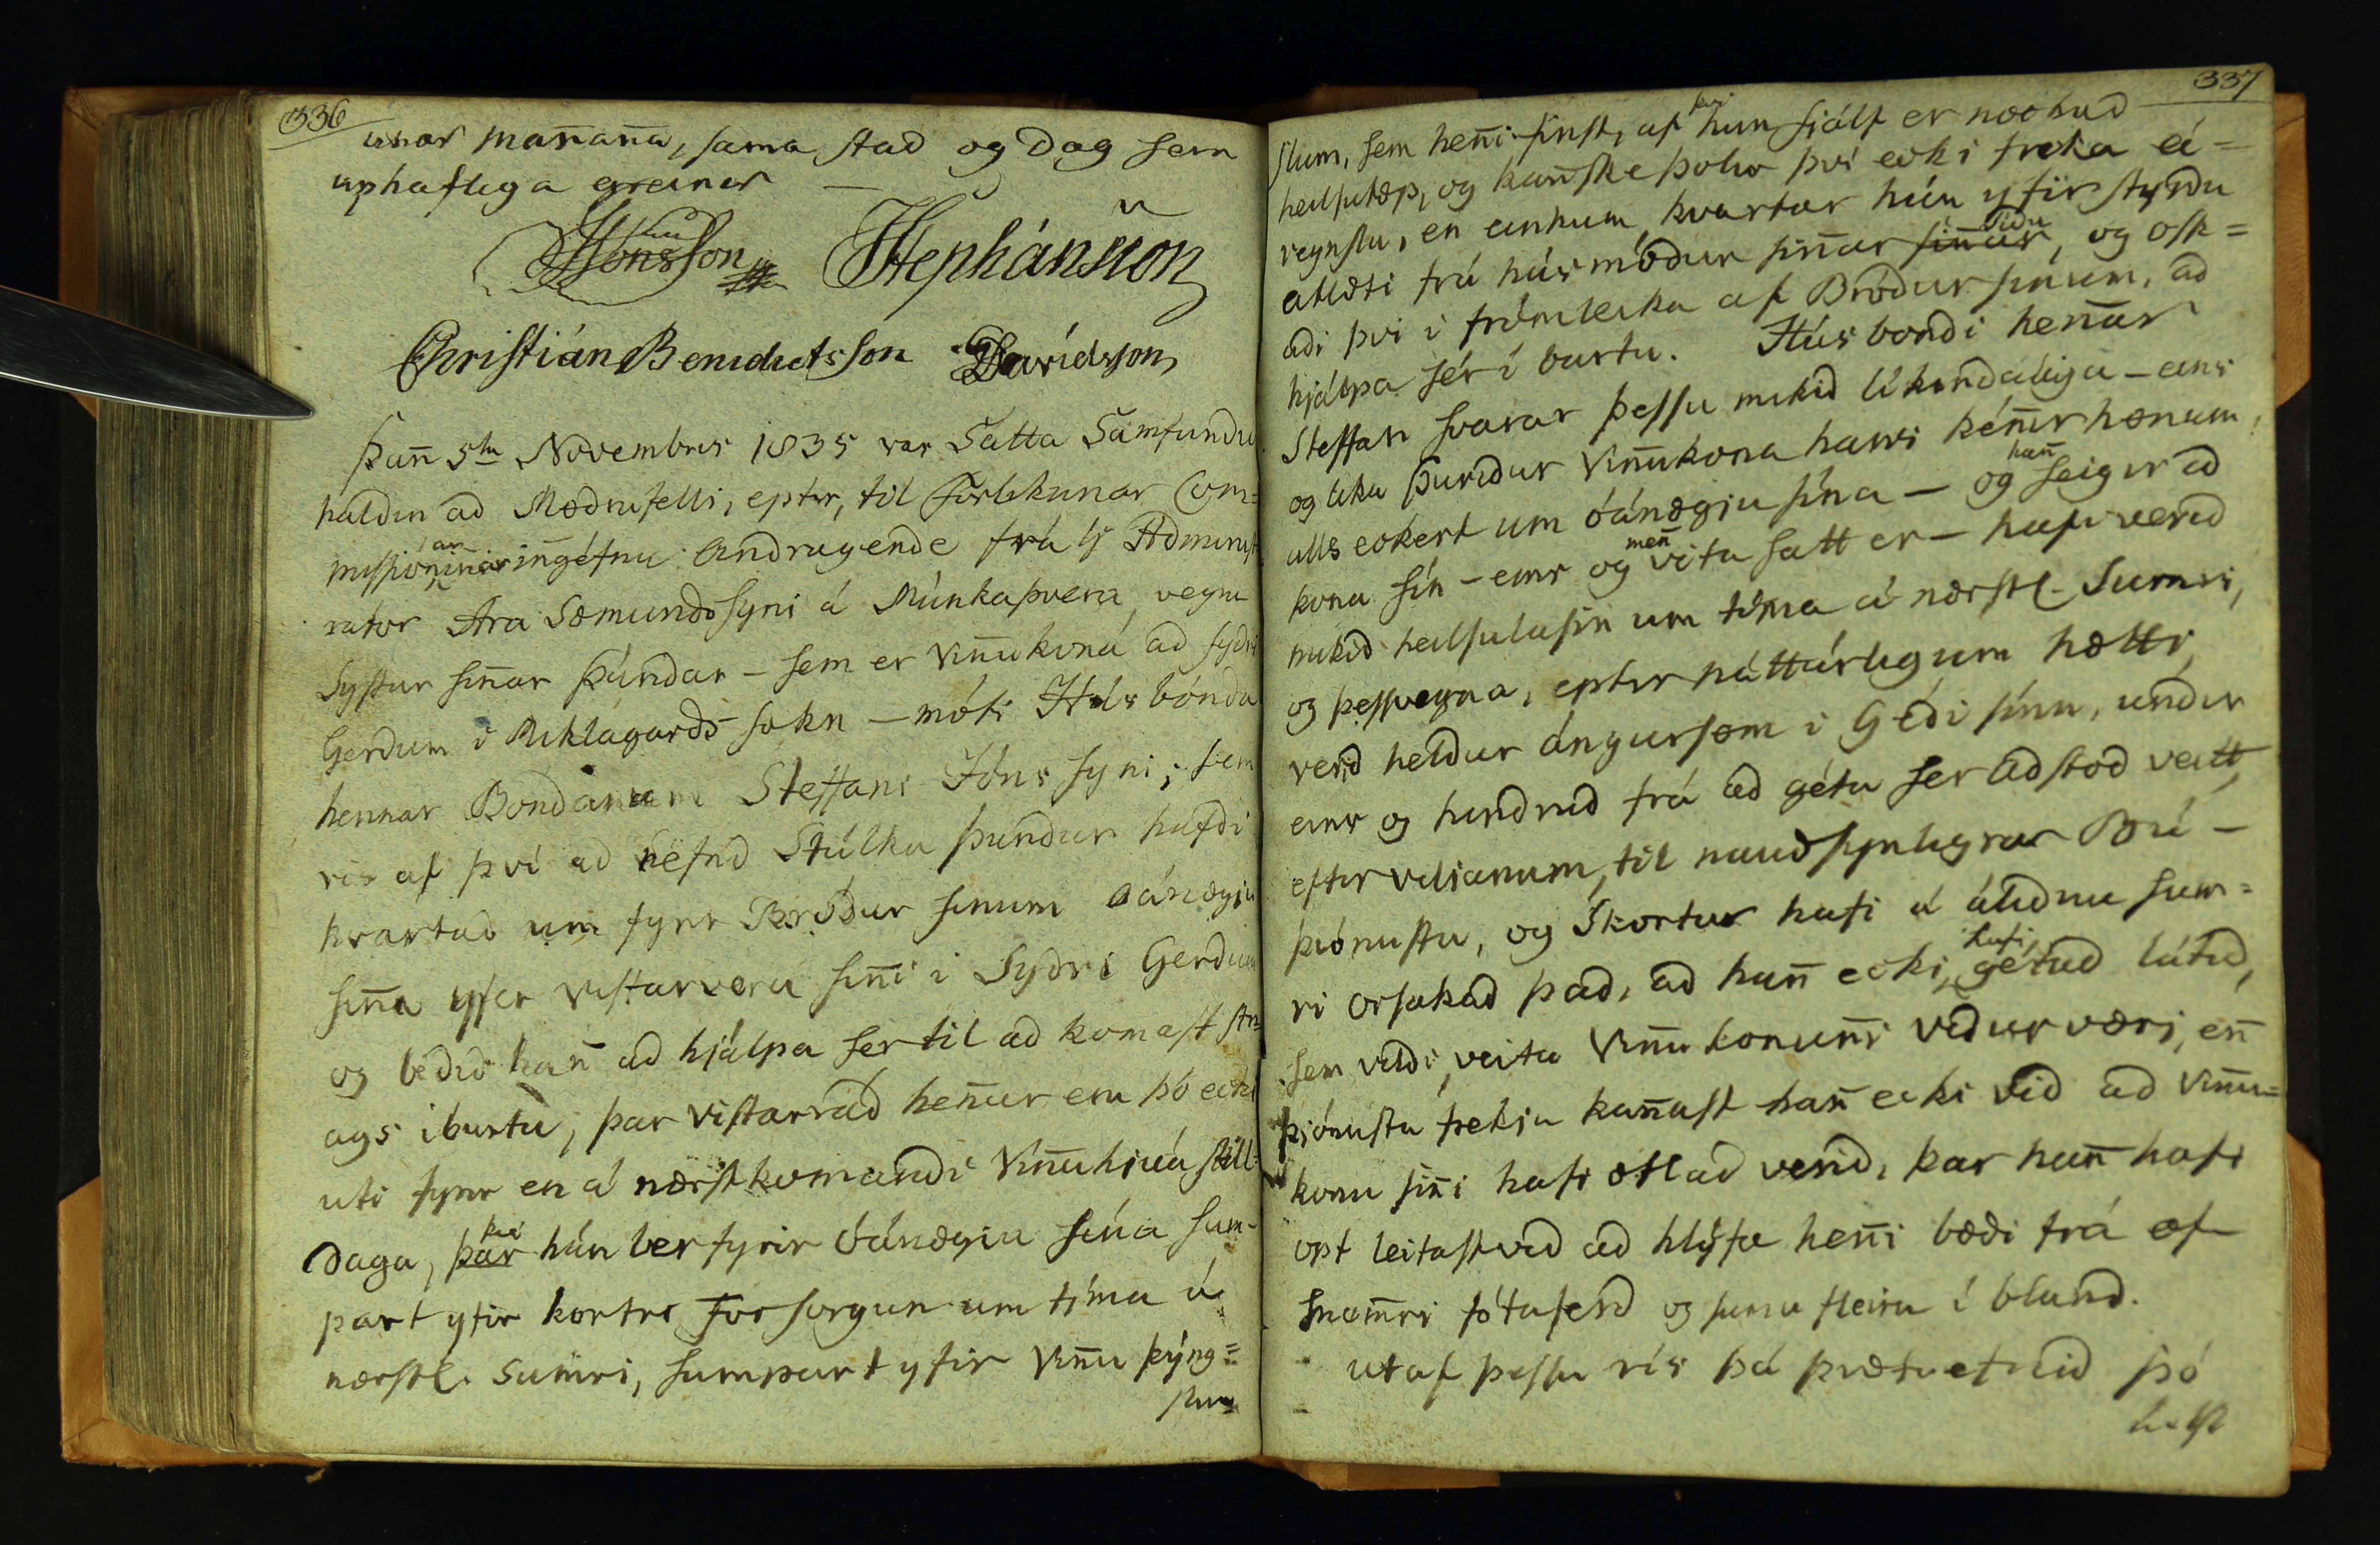 336
unar mañaña, sama stað og Dag sem
uphaflega greiner —
Jónsson Stephánsson
Christián Benedictsson Davídsson
Þañ 5ta Novembris 1835 var Sátta Samfundur
haldin að Mödrufelli, epter, til Forlikunar Com=
missioninar iñgéfnu Andragende frá hr Adminis
rator Ara Sæmundssyni á Múnkaþverá, vegna
Systur siñar Þuríðar – sem er Viñukona að syðri
Gerðum i Miklagarðs sókn – móti Húsbónda
hennar Bondanum Steffani Jóns syni; sem
rís af því að nefnd Stúlka Þuríður hafði
kvartað um fyrir Bróður sinum óánægju
siña yfer vistarveru siñi i Syðri Gerðum
og beðið hañ að hjálpa ser til að komast str
ags iburtu, þar vistarráð heñar eru þó ecki
uti fyrr en á næstkomandi Viñuhjúa skill=
daga, þar því hún ber fyrir óánægju sína sum-
part yfir kortri forsorgun um tíma á
næstl. Sumri, sumpart yfir Viñu þýng=
slum
337
slum, sem heñi finst, af því hun sjálf er nockuð
heilsutæp, og kañske þolir því ecki froka á=
reynslu, en einkum kvartar hún yfir styrðu
atlæti frá húsmóður siñar siñar síðu, og ósk=
aði því i frömleika af Bróður sínum, að
hjálpa sér í burtu. Húsbondi heñar
Steffan svarar þessu mikið líkindaliga – eins
og líka Þuríður Viñukona hans kéñir honum
alls eckert um óánægju sína – og hañ seigir að
kona sín – eins og meñ vita satt er – hafi verið
mikið heilsulasin um tíma á næstl. Sumri,
og þessvegna, eptir náttúrligum hætti
verið heldur ángursöm i Géði sínu, undir
eins og hindruð frá að géta ser aðstoð veitt
eftir vilianum, til nauðsynligrar Bú –
þiónustu, og Skortur hafi á áliðnu sum=
ri orsakað það, að hañ ecki hafi gétað látið,
sem vildi, veita Viñukonuñi viðurværi, eñ
þjónustu frekju kañast hañ ecki við að Viñu=
konu siñi hafi ætlað verið, þar hañ hafi
opt leitast við að hlýfa heñi bæði frá of
snemri fótaferð og sumu fleiru í bland.
utaf þessu rís þá þrætuefnið þó
helst